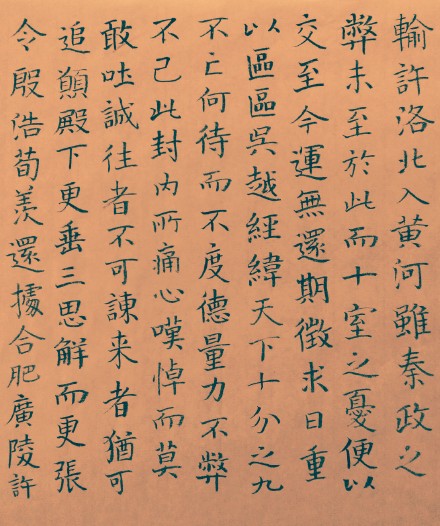 輸許洛北入黄河雖秦政之
弊未至於此而十室之憂便以
交至今運無還期徴求日重
以區區吳越經緯天下十分之九
不亡何待而不度德量力不弊
不已此封内所痛心嘆悼而莫
敢吐誠往者不可諌来者猶可
追願殿下更垂三思解而更張
令殷浩荀羡還據合肥廣陵許